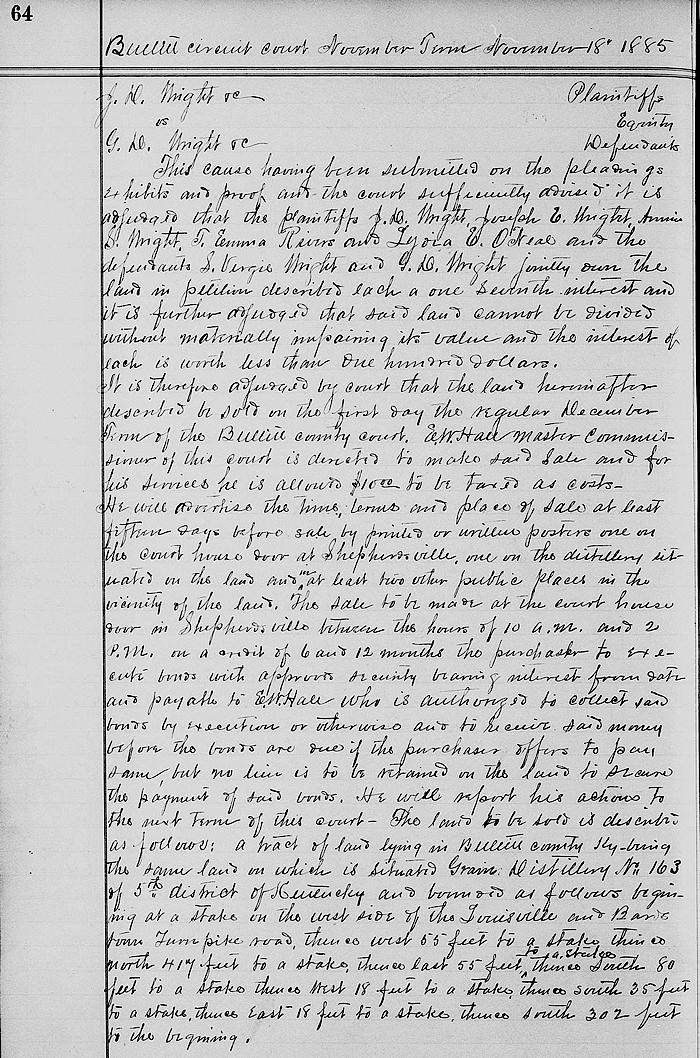 64
Bullitt circuit court November Term November 18" 1885
J. D. Wright &c Plaintiffs
vs Equity
G. D. Wright &c Defendants
This cause having been submitted on the pleadings
exhibits and proof and the court sufficiently advised it is
adjudged that the plaintiffs J. D. Wright, Joseph E. Wright, Annie
S. Wright, T. Emma Rivers and E. O'Neal and the
defendants S. Vergie Wright and G. D. Wright jointly own the
land in petition described each a one seventh interest and
it is further adjudged that said land cannot be divided
without materially impairing its value and the interest of
each is worth less than one hundred dollars.
It is therefore adjudged by court that the land hereinafter
described be sold on the first day the regular December
Term of the Bullitt county court. E.W. Hall Master Commis-
sioner of this court is directed to make said sale and for
his services he is allowed $10.00 to be taxed as costs-
He will advertise the time, terms and place of sale at least
fifteen days before sale by printed or written posters one on
the court house door at Shepherdsville, one on the distillery sit-
uated on the land and at least two other public places in the
vicinity of the land. The sale to be made at the court house
door in Shepherdsville between the hours of 10 a.m. and 2
P.M. on a credit of 6 and 12 months the purchaser to exe-
cute bonds with approved security bearing interest from date
and payable to E.W. Hall who is authorized to collect said
bonds by execution or otherwise and to receive said money
before the bonds are due if the purchaser offers to pay
same, but no lien is to be retained on the land to secure
the payment of said bonds. He will report his actions to
the next term of this court- The land to be sold is described
as follows: a tract of land lying in Bullitt county Ky- being
the same land on which is situated Grain Distillery No 163
of 5th district of Kentucky and bounded as follows begin-
ning at a stake on the west side of the Louisville and Bards
town Turnpike road, thence west 55 feet to a stake, thence
north 417 feet to a stake, thence East 55 feet to a stake thence South 80
feet to a stake thence West 18 feet to a stake, thence south 35 feet
to a stake, thence East 18 feet to a stake, thence south 302 feet
to the beginning.